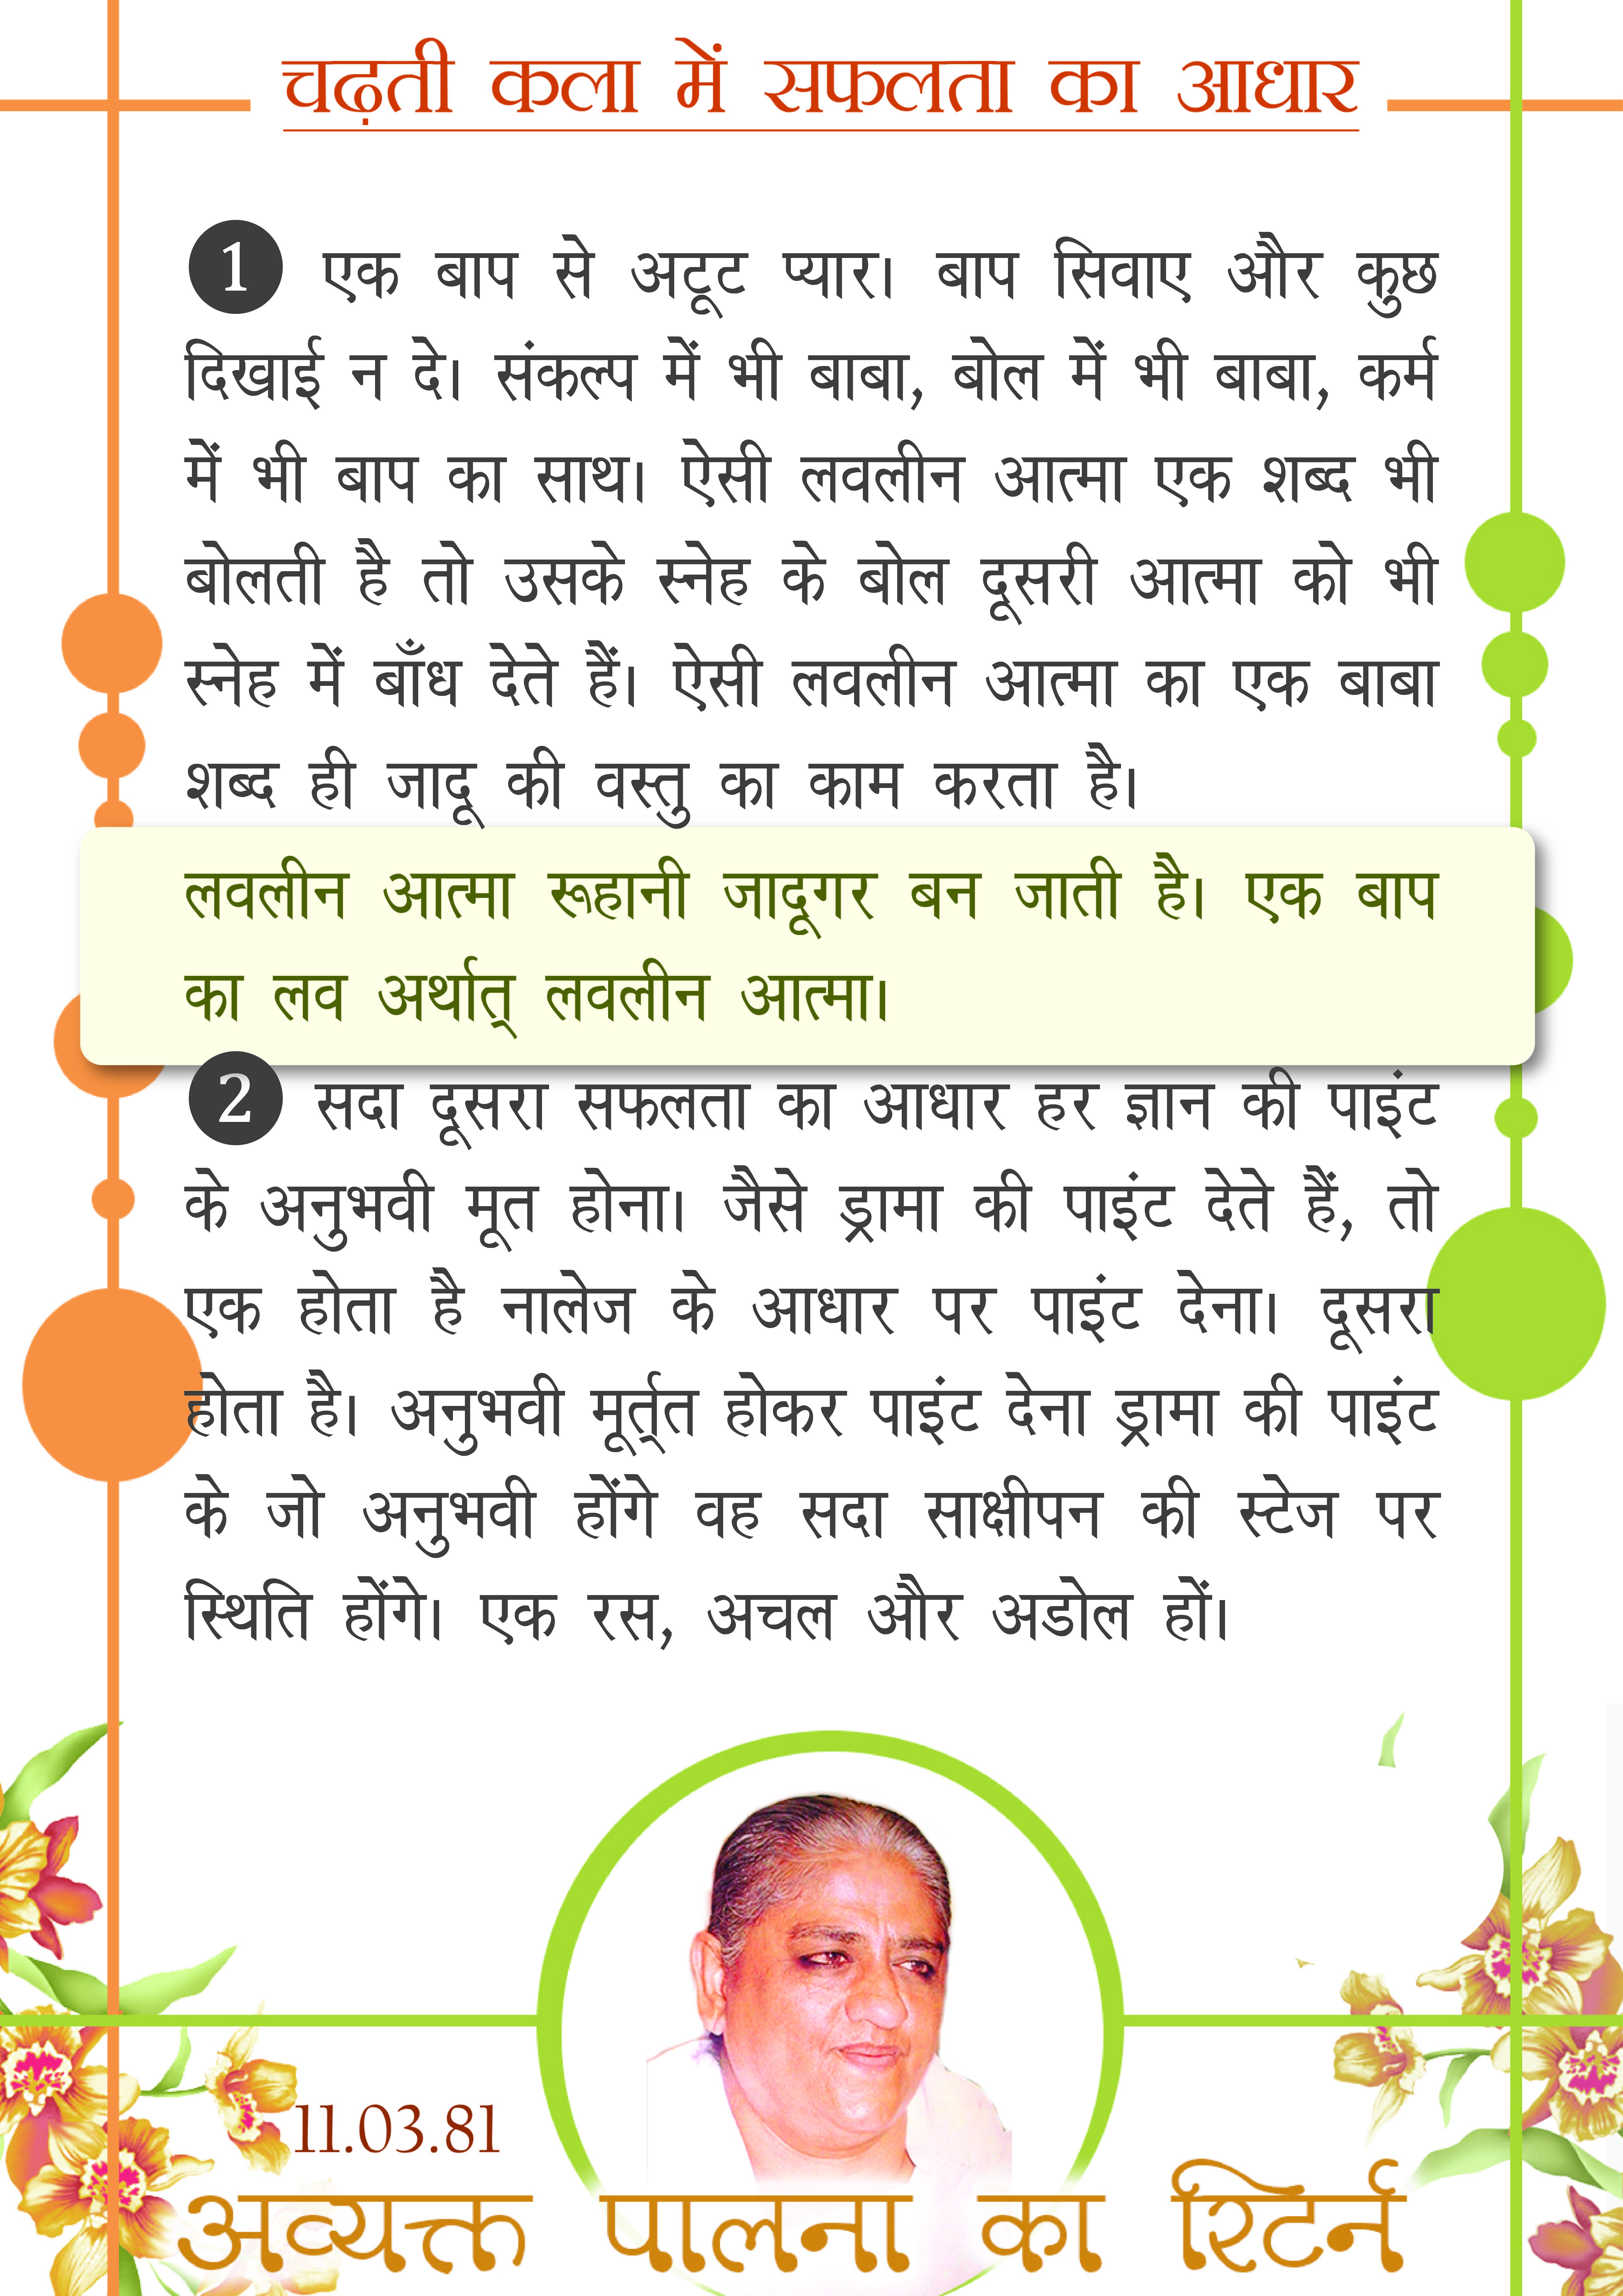 चढ़ती कला में सफलता का आधार
1 एक बाप से अटूट प्यार। बाप सिवाए और कुछ
दिखाई न दे। संकल्प में भी बाबा, बोल में भी बाबा, कर्म
में भी बाप का साथ। ऐसी लवलीन आत्मा एक शब्द भी
बोलती है तो उसके स्नेह के बोल दूसरी आत्मा को भी
स्नेह में बाँध देते हैं। ऐसी लवलीन आत्मा का एक बाबा
शब्द ही जादू की वस्तु का काम करता है।
लवलीन आत्मा रूहानी जादूगर बन जाती है। एक बाप
का लव अर्थात् लवलीन आत्मा।
2 सदा दूसरा सफलता का आधार हर ज्ञान की पाइंट
के अनुभवी मूत होना। जैसे ड्रामा की पाइंट देते हैं, तो
एक होता है नालेज के आधार पर पाइंट देना। दूसरा
होता है। अनुभवी मूर्त्त होकर पाइंट देना ड्रामा की पाइंट
के जो अनुभवी होंगे वह सदा साक्षीपन की स्टेज पर
स्थिति होंगे। एक रस, अचल और अडोल हों।
11.03.81
अव्यक्त पालना का रिटर्न